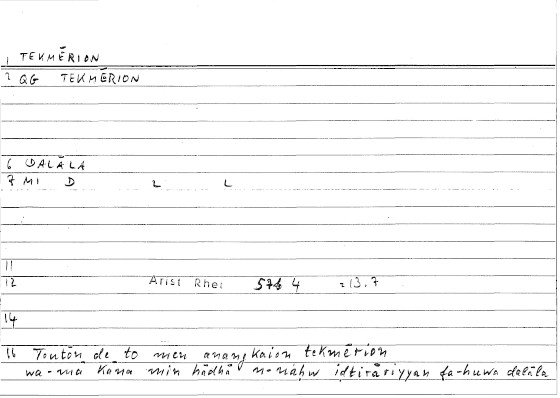 1 TEKMĒRION
2 QG TEKMĒRION
6 DALĀLA
7 MI D L L
11
12 Arist Rhet 57b 4 =13.7
14
15 Toutōn de to men anangkaion tekmērion
wa-mā kāna min hādhā n-naḥw iḍṭirāriyyan fa-huwa dalāla